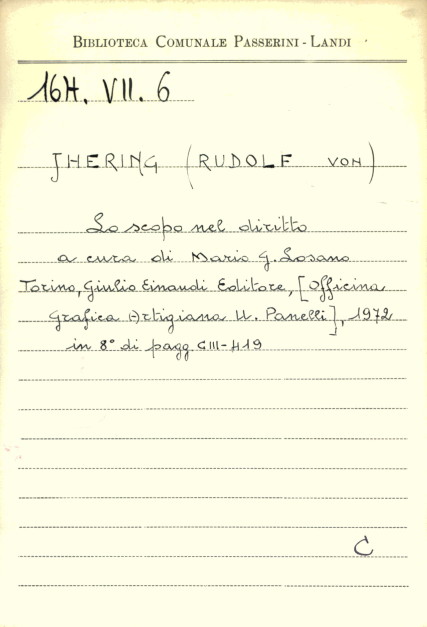 BIBLIOTECA COMUNALE PASSERINI-LANDI
16H. VII. 6
JHERING (RUDOLF VON)
Lo scopo nel diritto
a cura di Mario G. Losano
Torino, Giulio Einaudi Editore, [Officina
Grafica Artigiana U. Panelli], 1972
in 8° di pagg. CIII-419
C